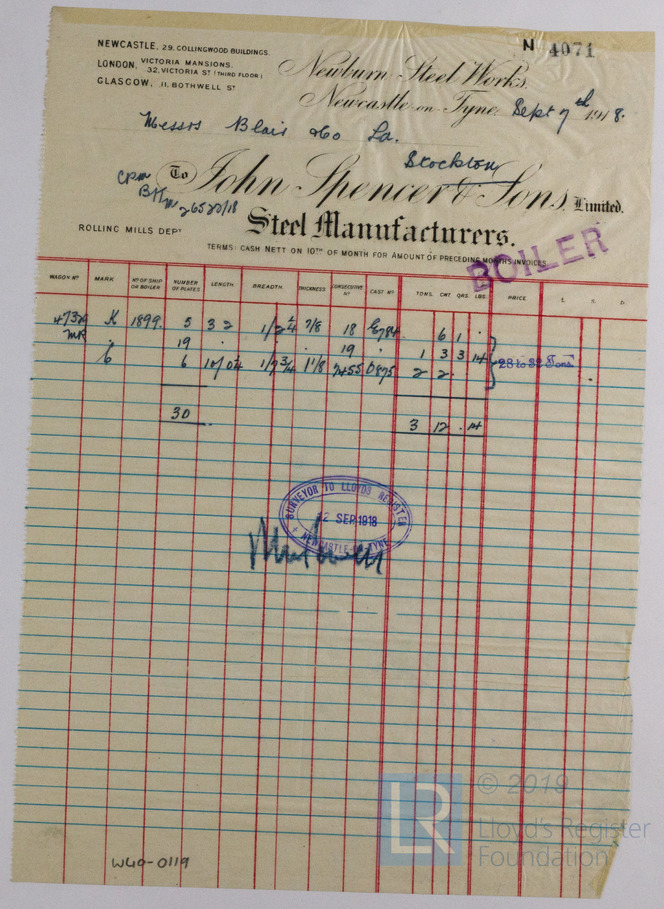 N 4071
NEWCASTLE, 29. COLLINGWOOD BUILDINGS.
LONDON, VICTORIA MANSIONS. 32. VICTORIA ST (THIRD FLOOR)
GLASGOW, 11. BOTHWELL ST
Newburn Steel Works,
Newcastle-on-Tyne, Sept 7th 1918.
Messrs Blair & Co Ld.
Stockton
To John Spencer & Sons, Limited.
Steel Manufacturers.
ROLLING MILLS DEPT
TERMS: CASH NETT ON 10TH OF MONTH FOR AMOUNT OF PRECEDING MONTHS INVOICES
BOILER
WAGON NO MARK NO OF SHIP OR BOILER NUMBER OF PLATES LENGTH BREADTH THICKNESS CONSECUTIVE NO CAST NO TONS. CWT QRS. LBS. PRICE £. S. D.
K 1899. 5 3 2 7/8 18 6 1 .
19 19 1 3 3 14
6 6 1 1/8 2455 2 2 . 28 to 32 Tons
30 3 12 . 14
SURVEYOR TO LLOYDS REGISTER
12 SEP 1918
NEWCASTLE-ON-TYNE
W40-0119
LR
© 2019
Lloyd's Register
Foundation